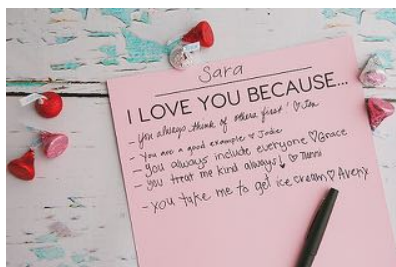 Sara
I LOVE YOU BECAUSE...
- You always think of others first! ♡ Jen
- You are a good example ♡ Jodie
- you always include everyone ♡ Grace
- you treat me kind always! ♡
- you take me to get ice cream ♡ Avery